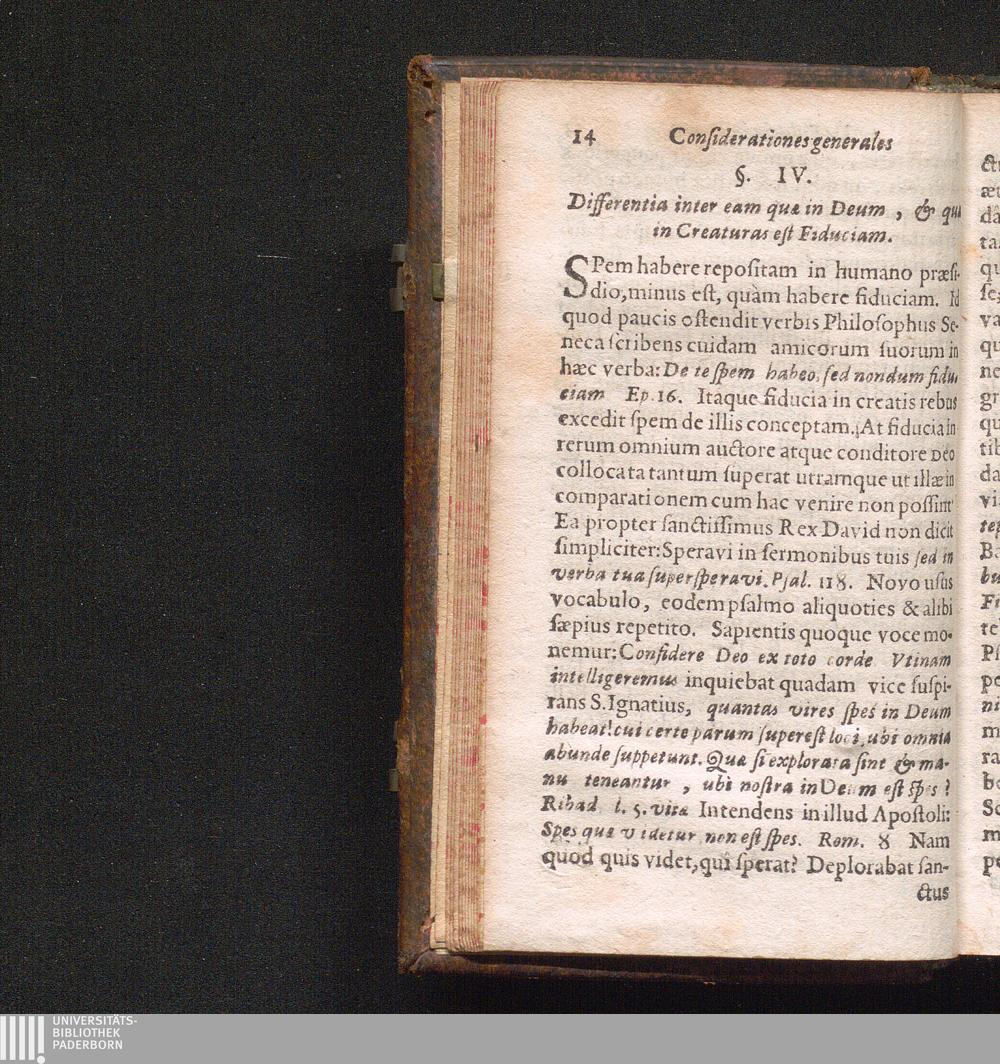 14 Considerationes generales
§. IV.
Differentia inter eam quæ in Deum, & quæ
in Creaturas est Fiduciam.
SPem habere repositam in humano præsi-
dio, minus est, quàm habere fiduciam. Id
quod paucis ostendit verbis Philosophus Se-
neca scribens cuidam amicorum suorum in
hæc verba: De te spem habeo, sed nondum fidu-
ciam Ep. 16. Itaque fiducia in creatis rebus
excedit spem de illis conceptam. At fiducia in
rerum omnium auctore atque conditore Deo
collocata tantum superat utramque ut illæ in
comparationem cum hac venire non possint
Ea propter sanctissimus Rex David non dicit
simpliciter: Speravi in sermonibus tuis sed in
verba tua supersperavi. Psal. 118. Novo usus
vocabulo, eodem psalmo aliquoties & alibi
sæpius repetito. Sapientis quoque voce mo-
nemur: Confidere Deo ex toto corde Vtinam
intelligeremus inquiebat quadam vice suspi-
rans S. Ignatius, quantas vires spes in Deum
habeat! cui certe parum superest loci, ubi omnia
abunde suppetunt. Quæ si explorata sint & ma-
nu teneantur, ubi nostra in Deum est spes?
Ribad. l. 5. vitæ Intendens in illud Apostoli:
Spes quæ videtur non est spes. Rom. 8 Nam
quod quis videt, qui sperat? Deplorabat san-
ctus
UNIVERSITÄTS-
BIBLIOTHEK
PADERBORN